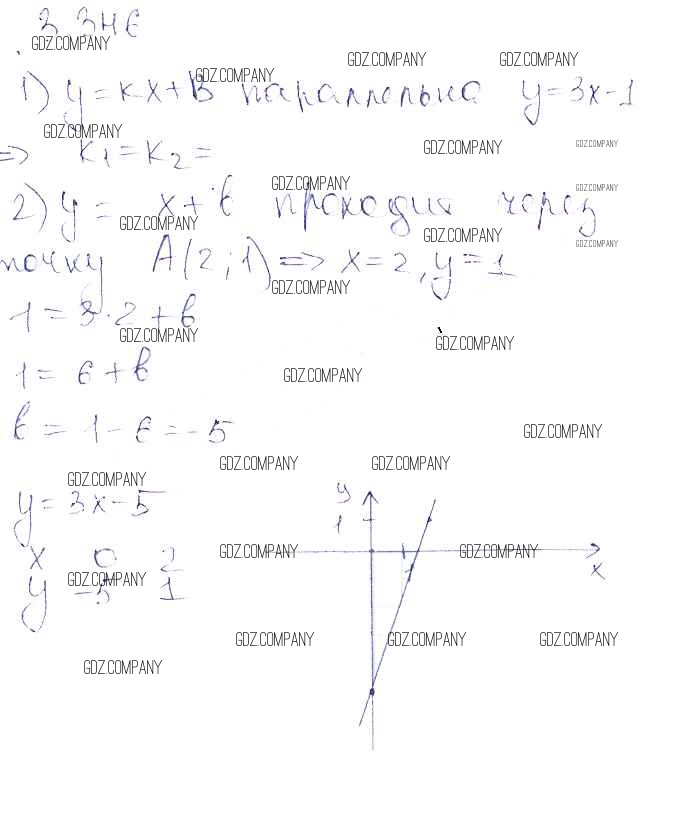 GDZ.COMPANY
GDZ.COMPANY GDZ.COMPANY
GDZ.COMPANY
1) y = kx + b параллельно y = 3x - 1
GDZ.COMPANY
GDZ.COMPANY GDZ.COMPANY
=> k1 = k2 =
GDZ.COMPANY GDZ.COMPANY
2) y = x + b проходит через
GDZ.COMPANY GDZ.COMPANY GDZ.COMPANY
точку A(2; 1) => x = 2, y = 1
GDZ.COMPANY
1 = 3 · 2 + b
GDZ.COMPANY GDZ.COMPANY
1 = 6 + b
GDZ.COMPANY
b = 1 - 6 = -5
GDZ.COMPANY
GDZ.COMPANY GDZ.COMPANY
GDZ.COMPANY
y = 3x - 5
x 0 2
y -5 1
GDZ.COMPANY GDZ.COMPANY
GDZ.COMPANY
y
1
1
x
GDZ.COMPANY GDZ.COMPANY GDZ.COMPANY
GDZ.COMPANY